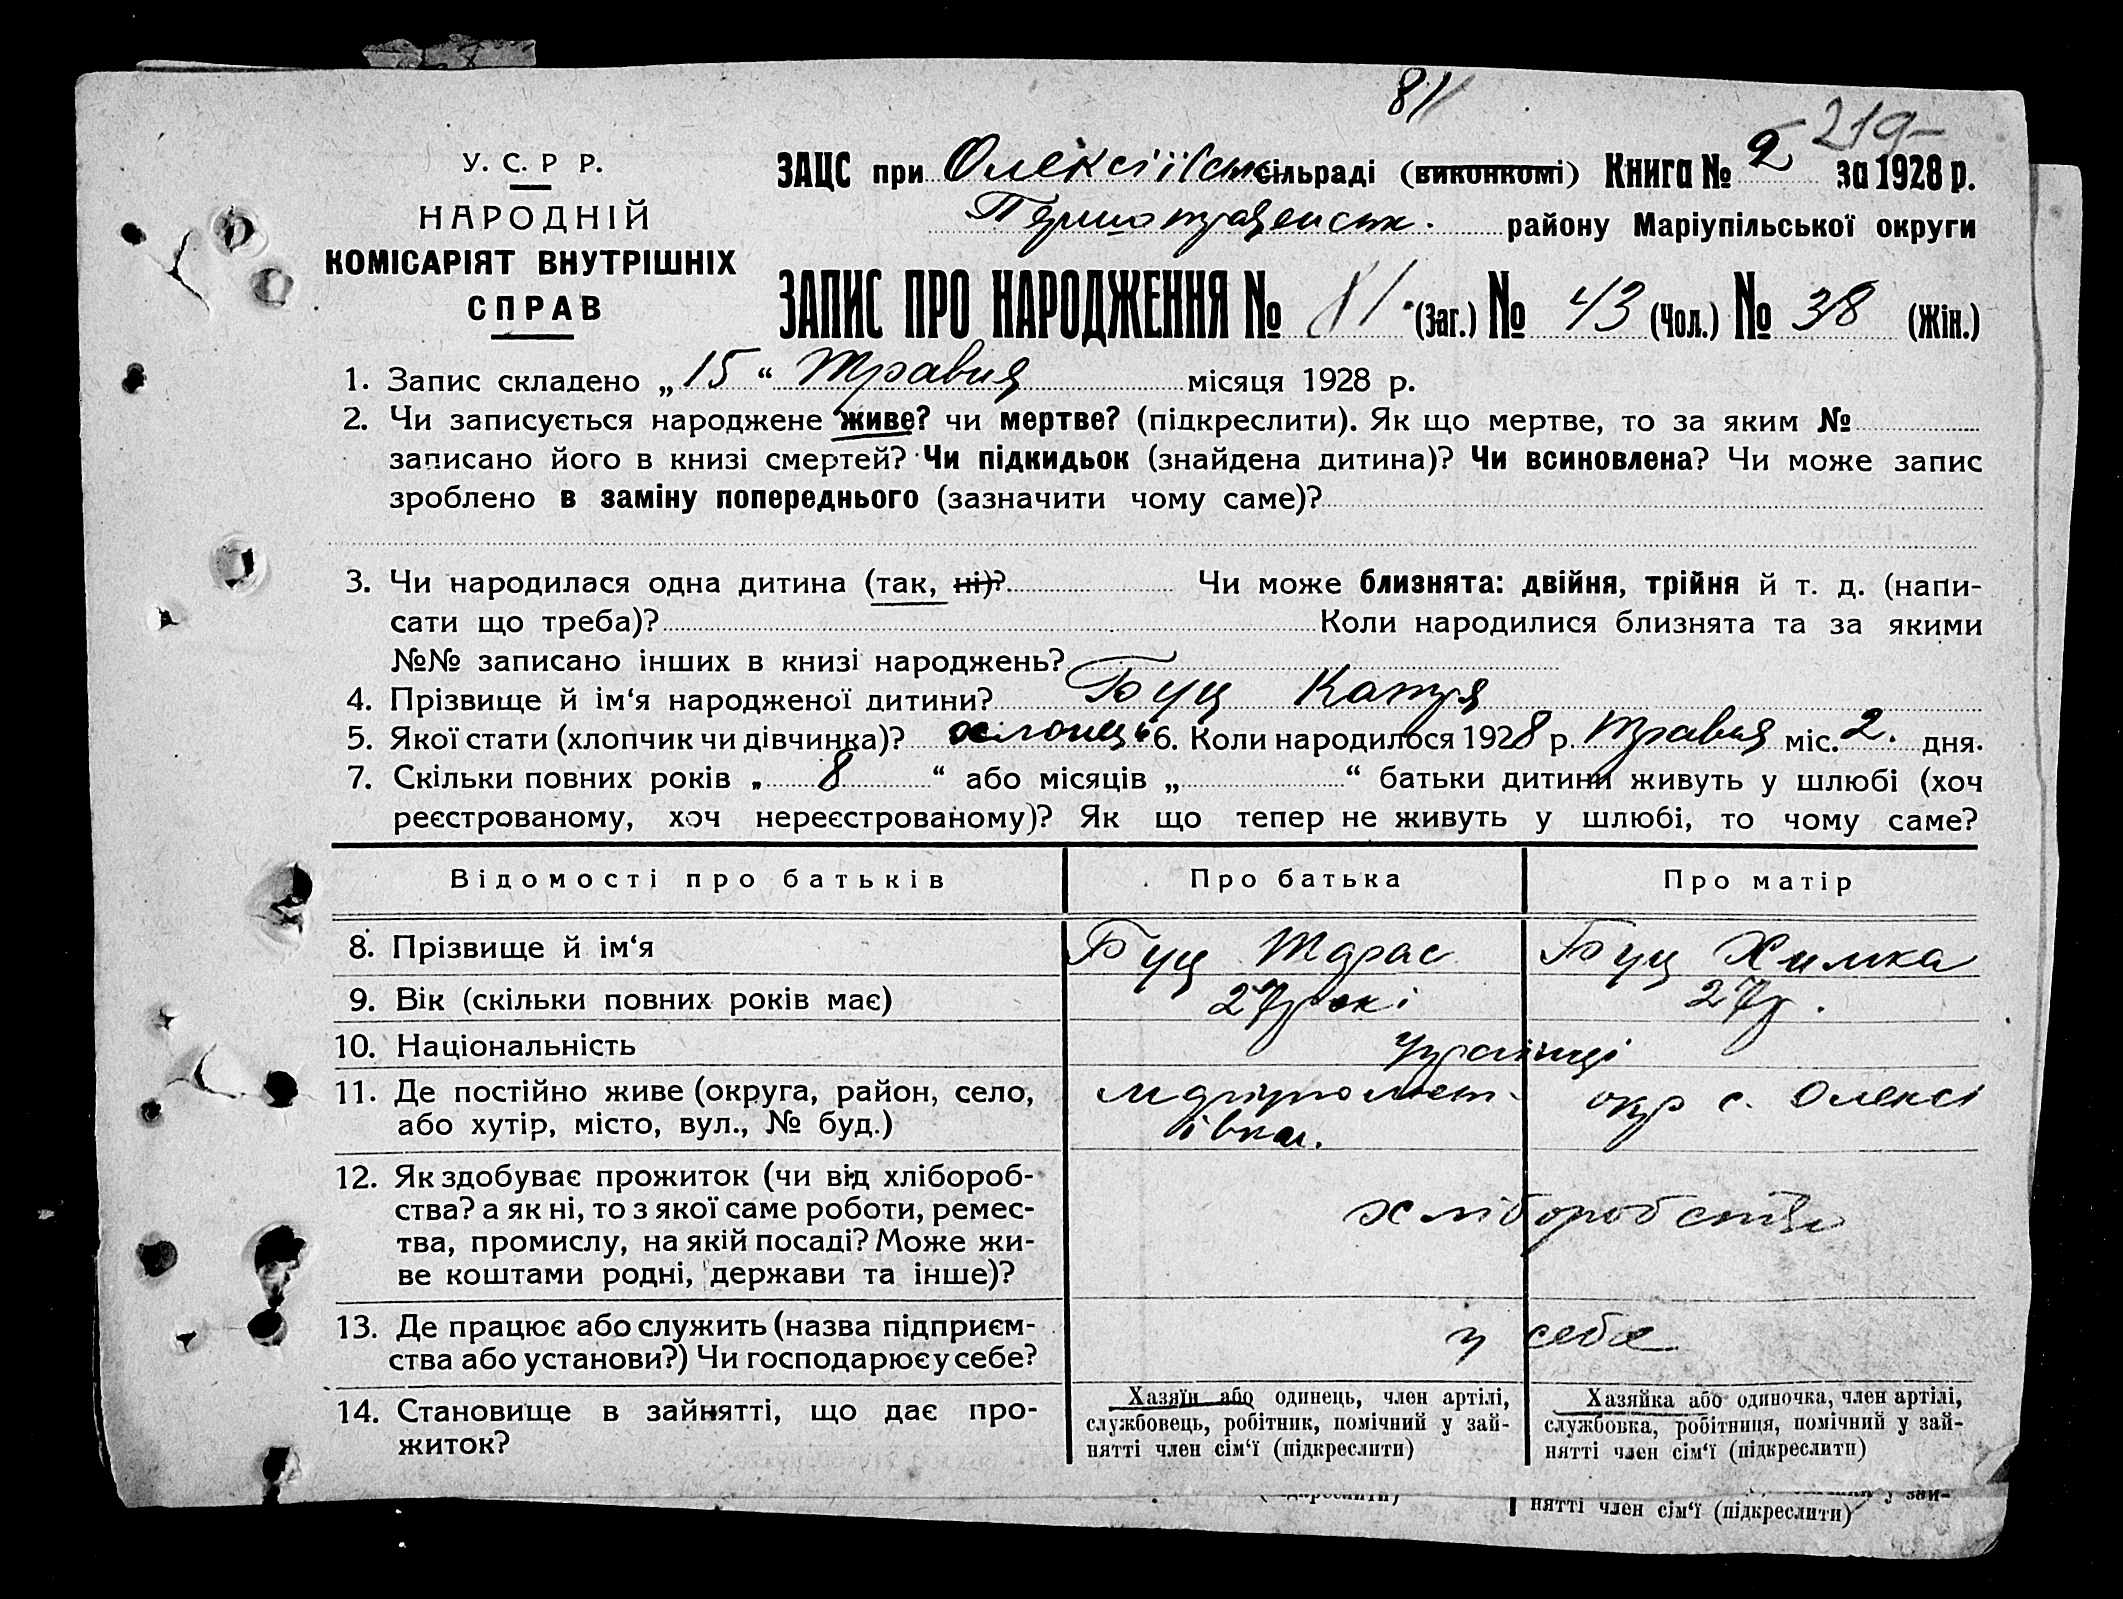 81
219
У. С. Р Р.
НАРОДНІЙ
КОМІСАРІЯТ ВНУТРІШНІХ
СПРАВ
ЗАЦС при Олексіївськ сільраді (виконкомі) Книга № 2 за 1928 р.
Першотравенськ. району Маріупільської округи
ЗАПИС ПРО НАРОДЖЕННЯ № 81 (Заг.) № 43 (Чол.) № 38 (Жін.)
1. Запис складено „ 15 “ Травня місяця 1928 р.
2. Чи записується народжене живе? чи мертве? (підкреслити). Як що мертве, то за яким №
записано його в книзі смертей? Чи підкидьок (знайдена дитина)? Чи всиновлена? Чи може запис
зроблено в заміну попереднього (зазначити чому саме)?
3. Чи народилася одна дитина (так, ні)? Чи може близнята: двійня, трійня й т. д. (напи-
сати що треба)? Коли народилися близнята та за якими
№№ записано інших в книзі народжень?
4. Прізвище й ім‘я народженої дитини? Буц Катря
5. Якої стати (хлопчик чи дівчинка)? хлопець 6. Коли народилося 1928 р. Травня міс. 2. дня.
7. Скільки повних років „ 8 “ або місяців „ “ батьки дитини живуть у шлюбі (хоч
реєстрованому, хоч нереєстрованому)? Як що тепер не живуть у шлюбі, то чому саме?
Відомості про батьків Про батька Про матір
8. Прізвище й ім‘я Буц Тарас Буц Химка
9. Вік (скільки повних років має) 27 рокі 27 р.
10. Національність Українці
11. Де постійно живе (округа, район, село, Маріупольськ. окр с. Олексі
або хутір, місто, вул., № буд.) івка.
12. Як здобуває прожиток (чи від хлібороб-
ства? а як ні, то з якої саме роботи, ремес- хліборобство
тва, промислу, на якій посаді? Може жи-
ве коштами родні, держави та інше)?
13. Де працює або служить (назва підприєм- у себе
ства або установи?) Чи господарює у себе?
14. Становище в зайнятті, що дає про-
житок?
Хазяїн або одинець, член артілі,
службовець, робітник, помічний у зай-
нятті член сім‘ї (підкреслити)
Хазяйка або одиночка, член артілі,
службовка, робітниця, помічний у зай-
нятті член сім‘ї (підкреслити)
нятті член сім‘ї (підкреслити)